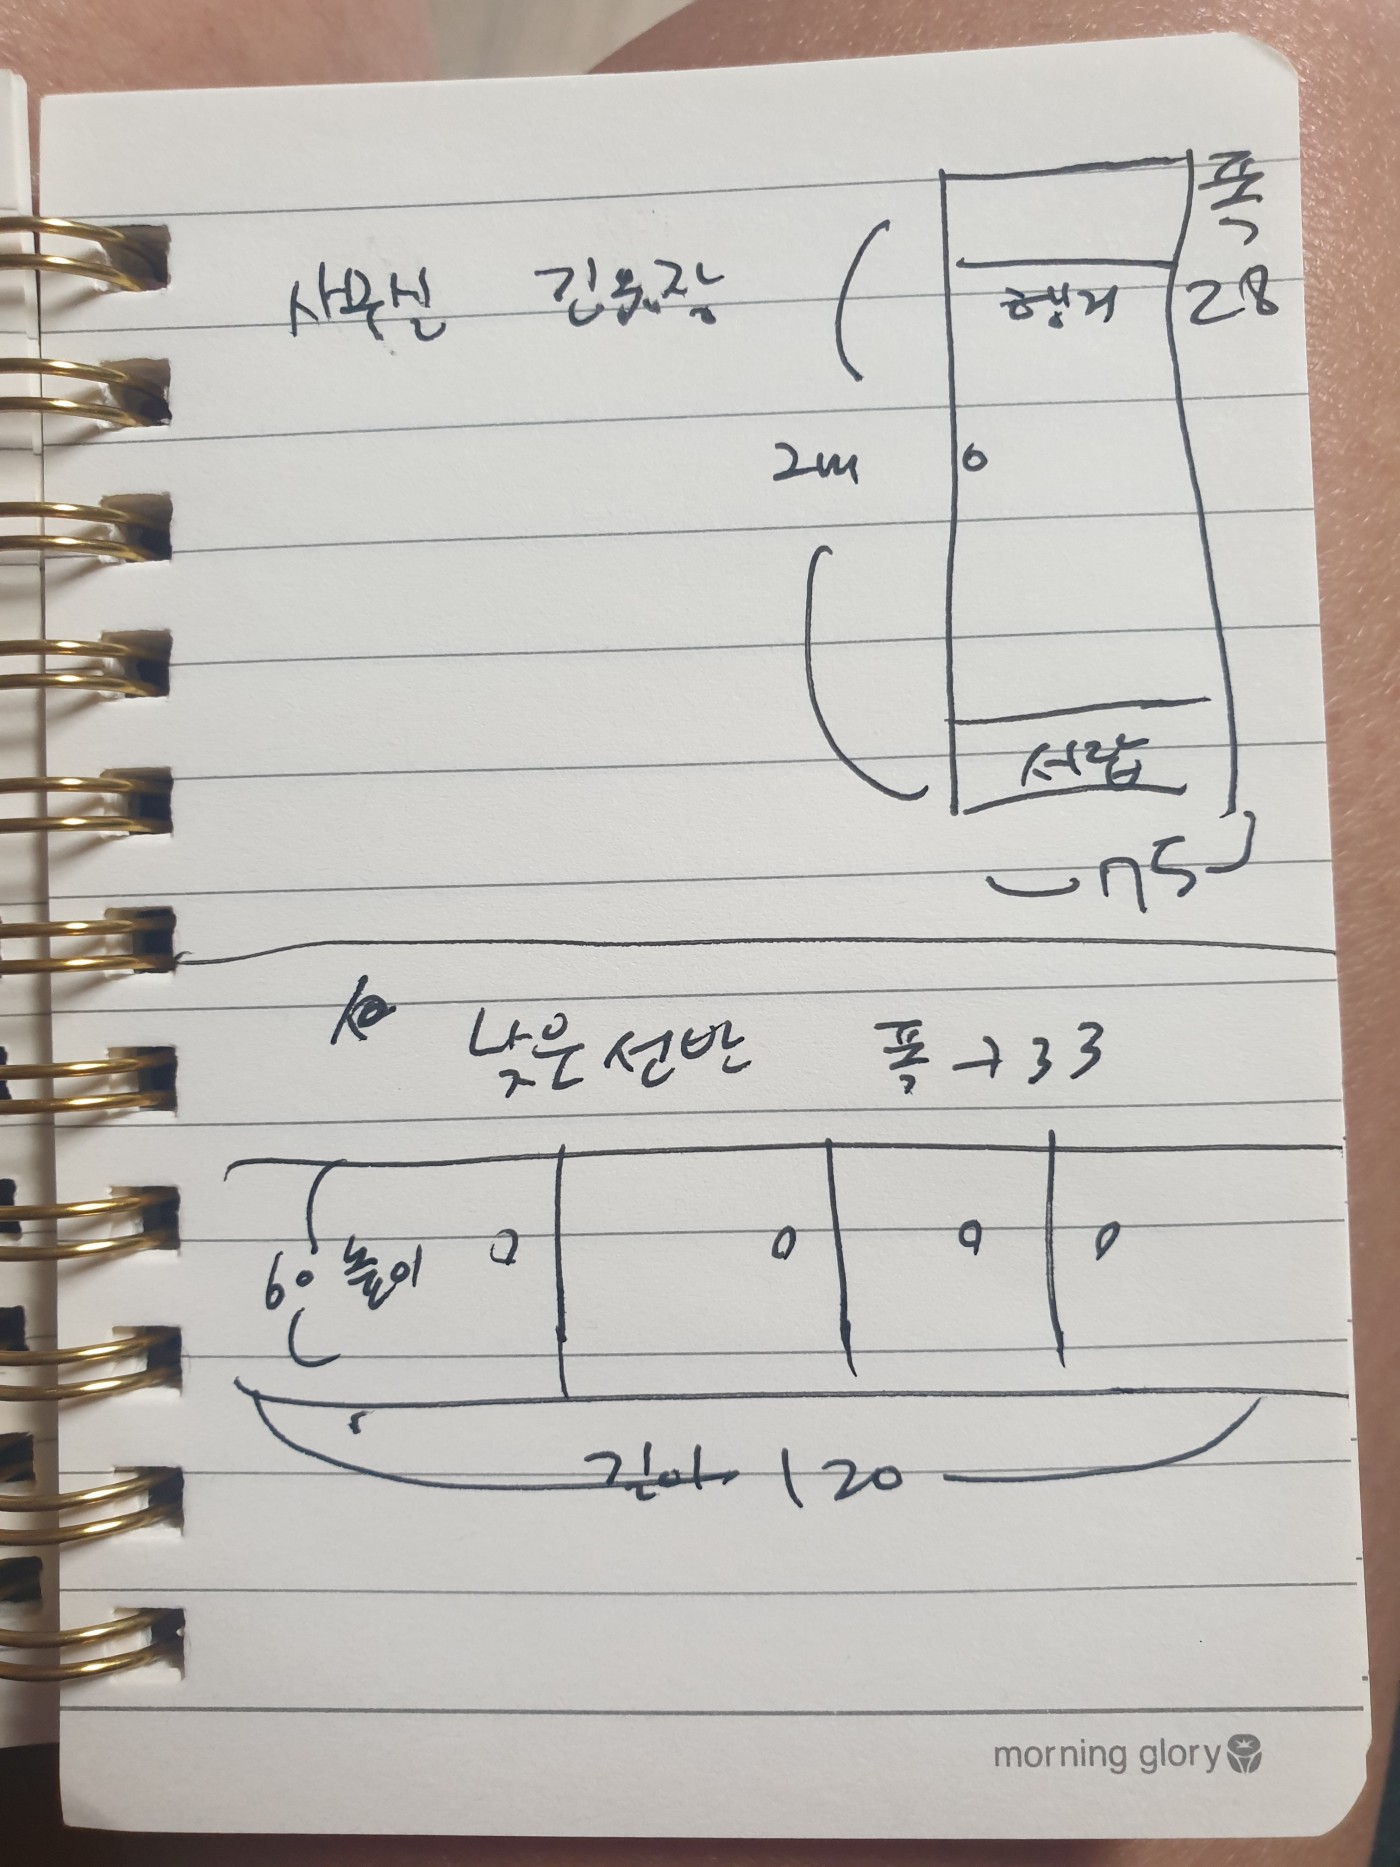 폭
사무실 긴옷장
행거 28
2m
서랍
75
낮은 선반 폭→33
60 높이
길이 120
morning glory